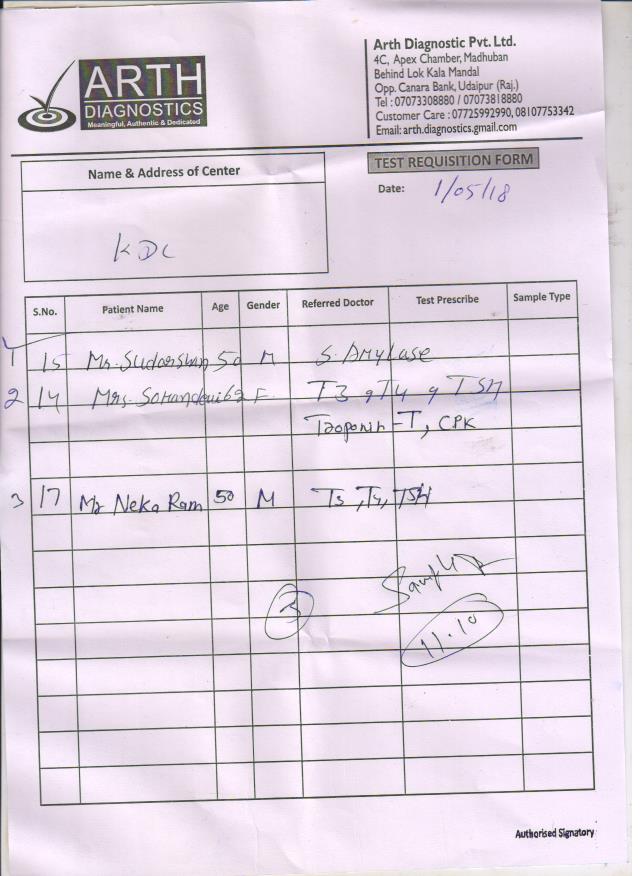 ARTH
DIAGNOSTICS
Meaningful, Authentic & Dedicated
Arth Diagnostic Pvt. Ltd.
4C, Apex Chamber, Madhuban
Behind Lok Kala Mandal
Opp. Canara Bank, Udaipur (Raj.)
Tel : 07073308880 / 07073818880
Customer Care : 07725992990, 08107753342
Email: arth.diagnostics.gmail.com
TEST REQUISITION FORM
Name & Address of Center
Date: 1/05/18
KDC
S.No. Patient Name Age Gender Referred Doctor Test Prescribe Sample Type
1 15 Mr. Sudarshan 50 M S. Amylase
2 14 Mrs. 62 F T3, T4, TSH
Troponin-T, CPK
3 17 Mr Neka Ram 50 M T3, T4, TSH
3
11.10
Authorised Signatory